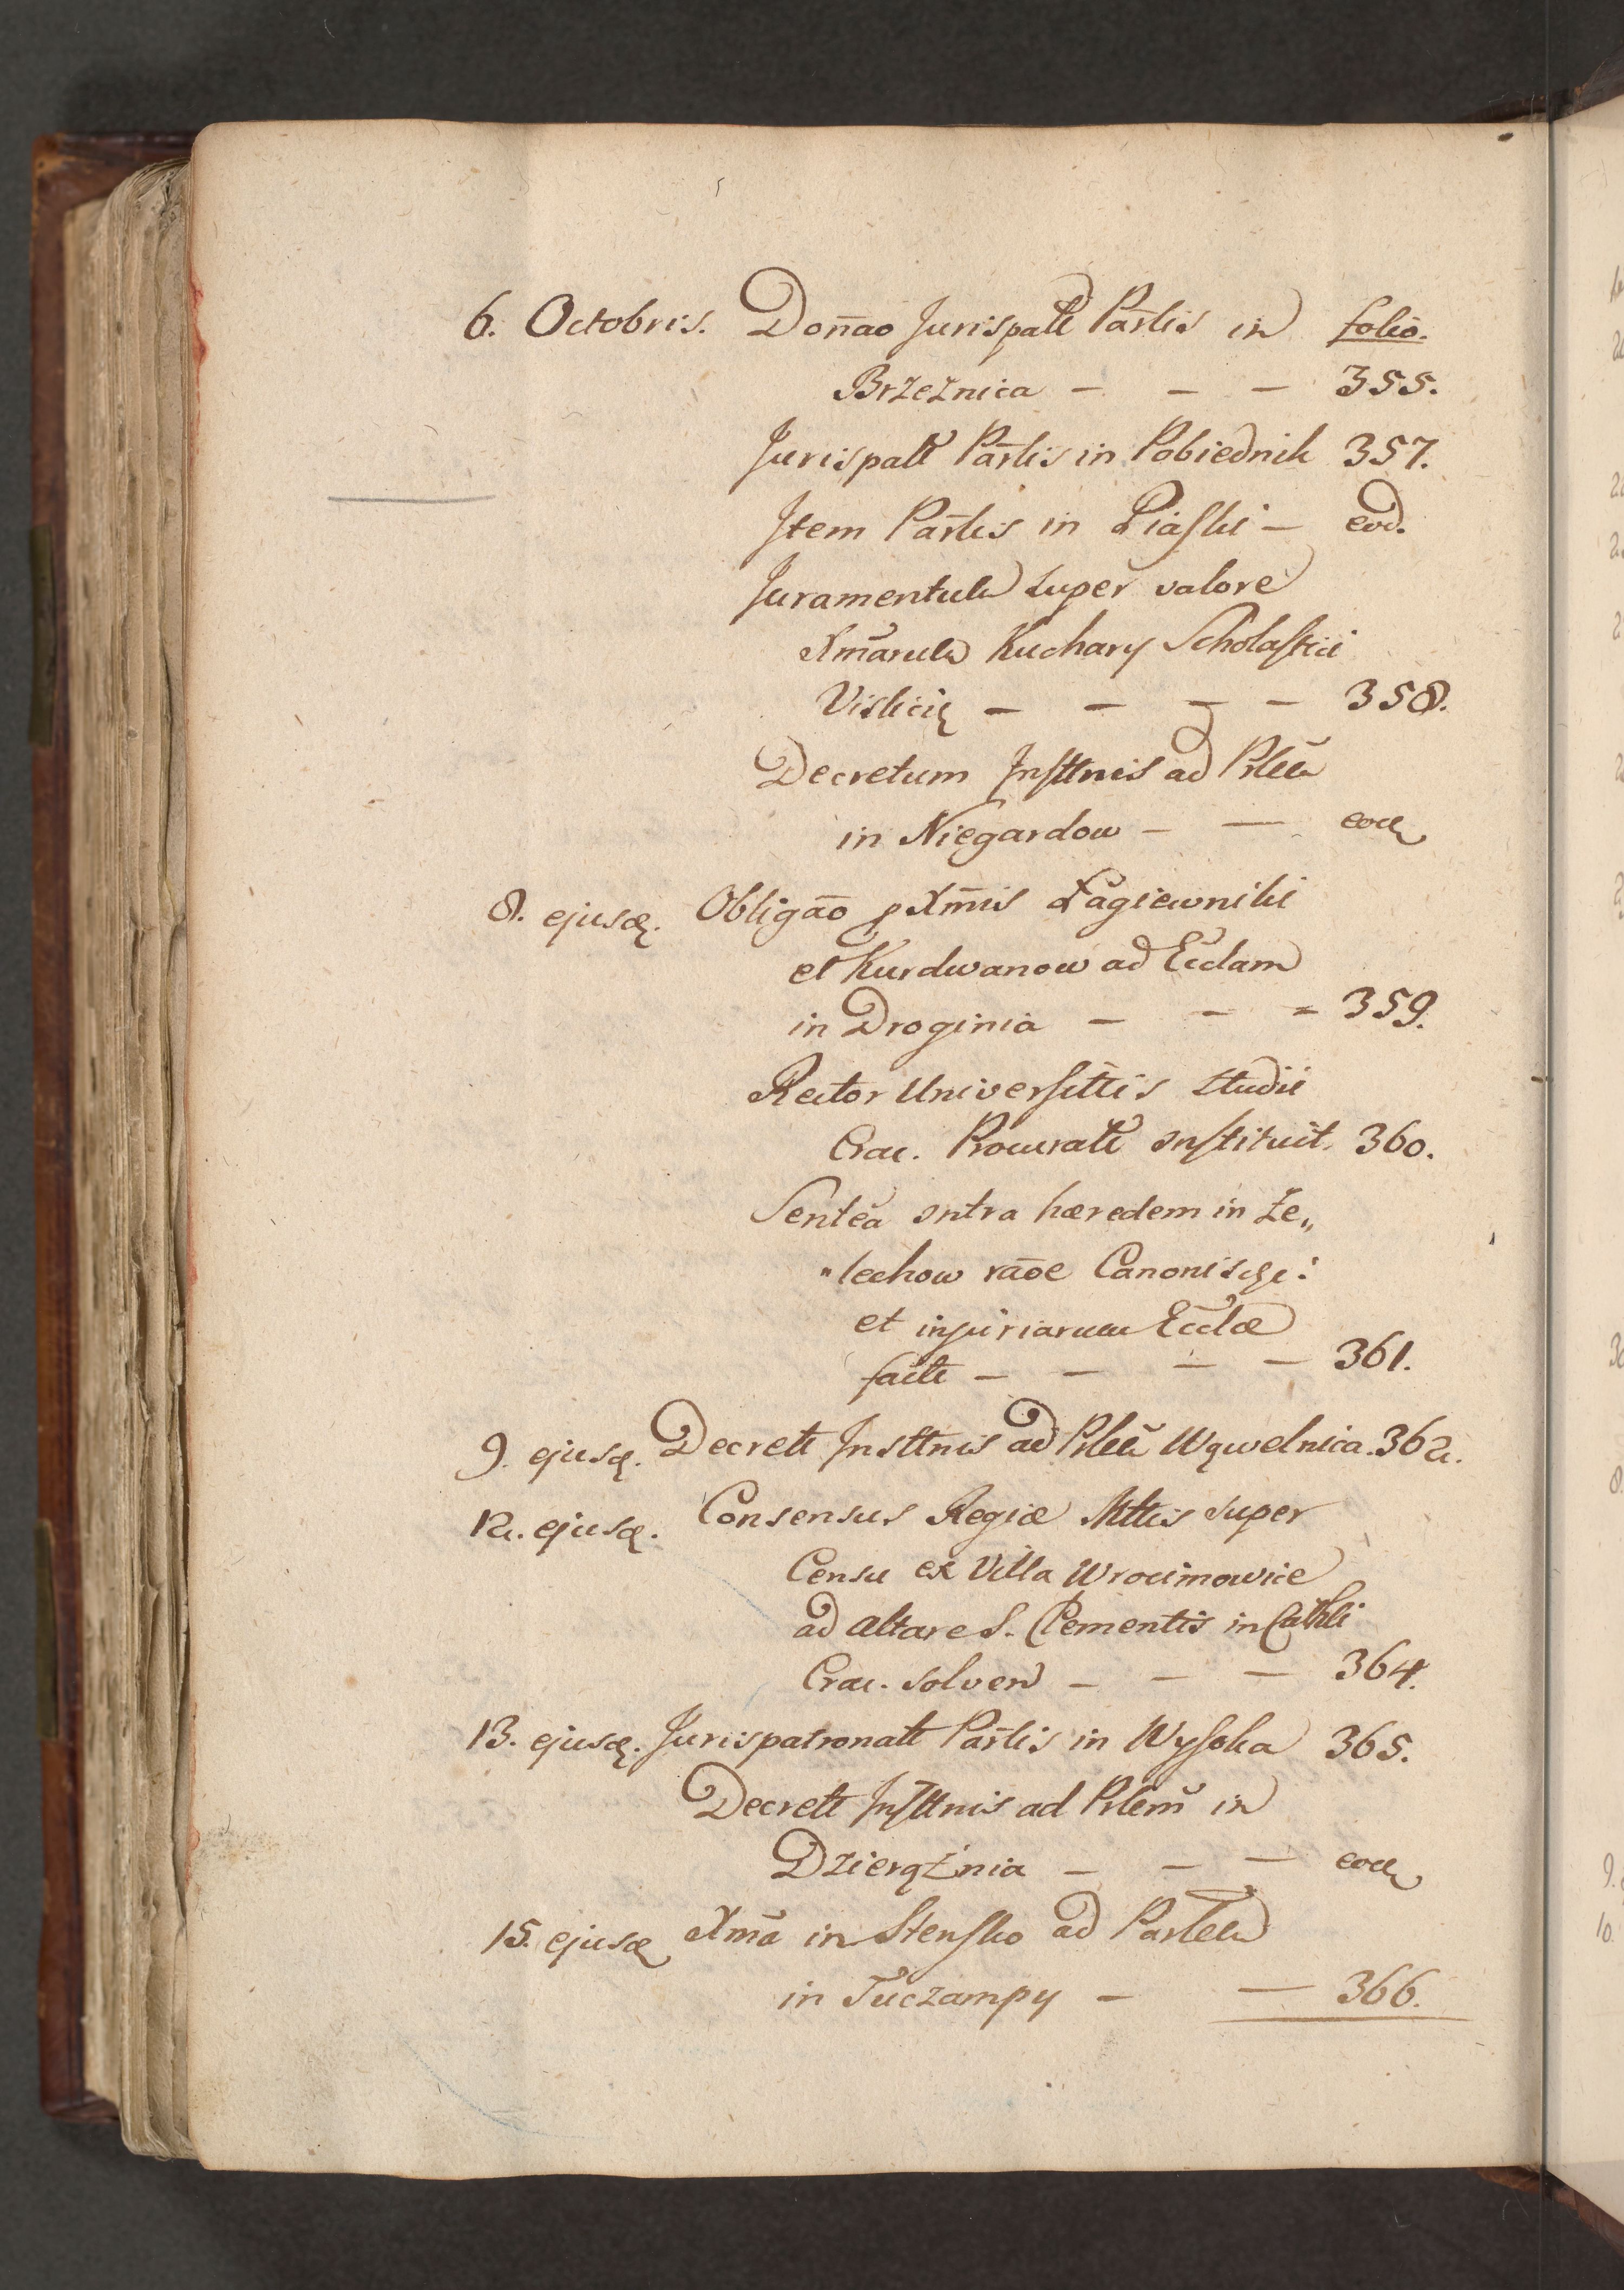 6. Octobris. Don̄ao Jurispatt Par̄lis in folio.
Brzeznica - - - 355.
Jurispatt Par̄lis in Pobiednik 357.
Item Par̄lis in Piaski - eod.
Juramentum super valore
Xmarum Kuchary Scholastici
Vislicię - - - - 358.
Decretum Insttnis ad Prlem
in Niegardow - - eod
8. ejusd. Obligāo p Xm̄is Łagiewniki
et Kurdwanow ad Ecclam
in Droginia - - = 359.
Rector Universittis studii
Crac. Procuratt onstituit. 360.
Sentēa ontra hæredem in Ze„
„lechow rāoe Canonisge:
et injuriarum Ecclæ
factt - - - - 361.
9. ejusd. Decrett Insttnis ad Prlem Wąwelnica. 362.
12. ejusd. Consensus Regiæ Mttis super
Censu ex Villa Wrocimowice
ad altare S. Clementis in Cathli
Crac. solven - - - 364.
13. ejusd. Jurispatronatt Par̄lis in Wysoka 365.
Decrett Insttnis ad Prlem̄ in
Dzierążnia - - - eod
15. ejusd Xm̄a in Stensko ad Parlem
in Tuczampy - - 366.